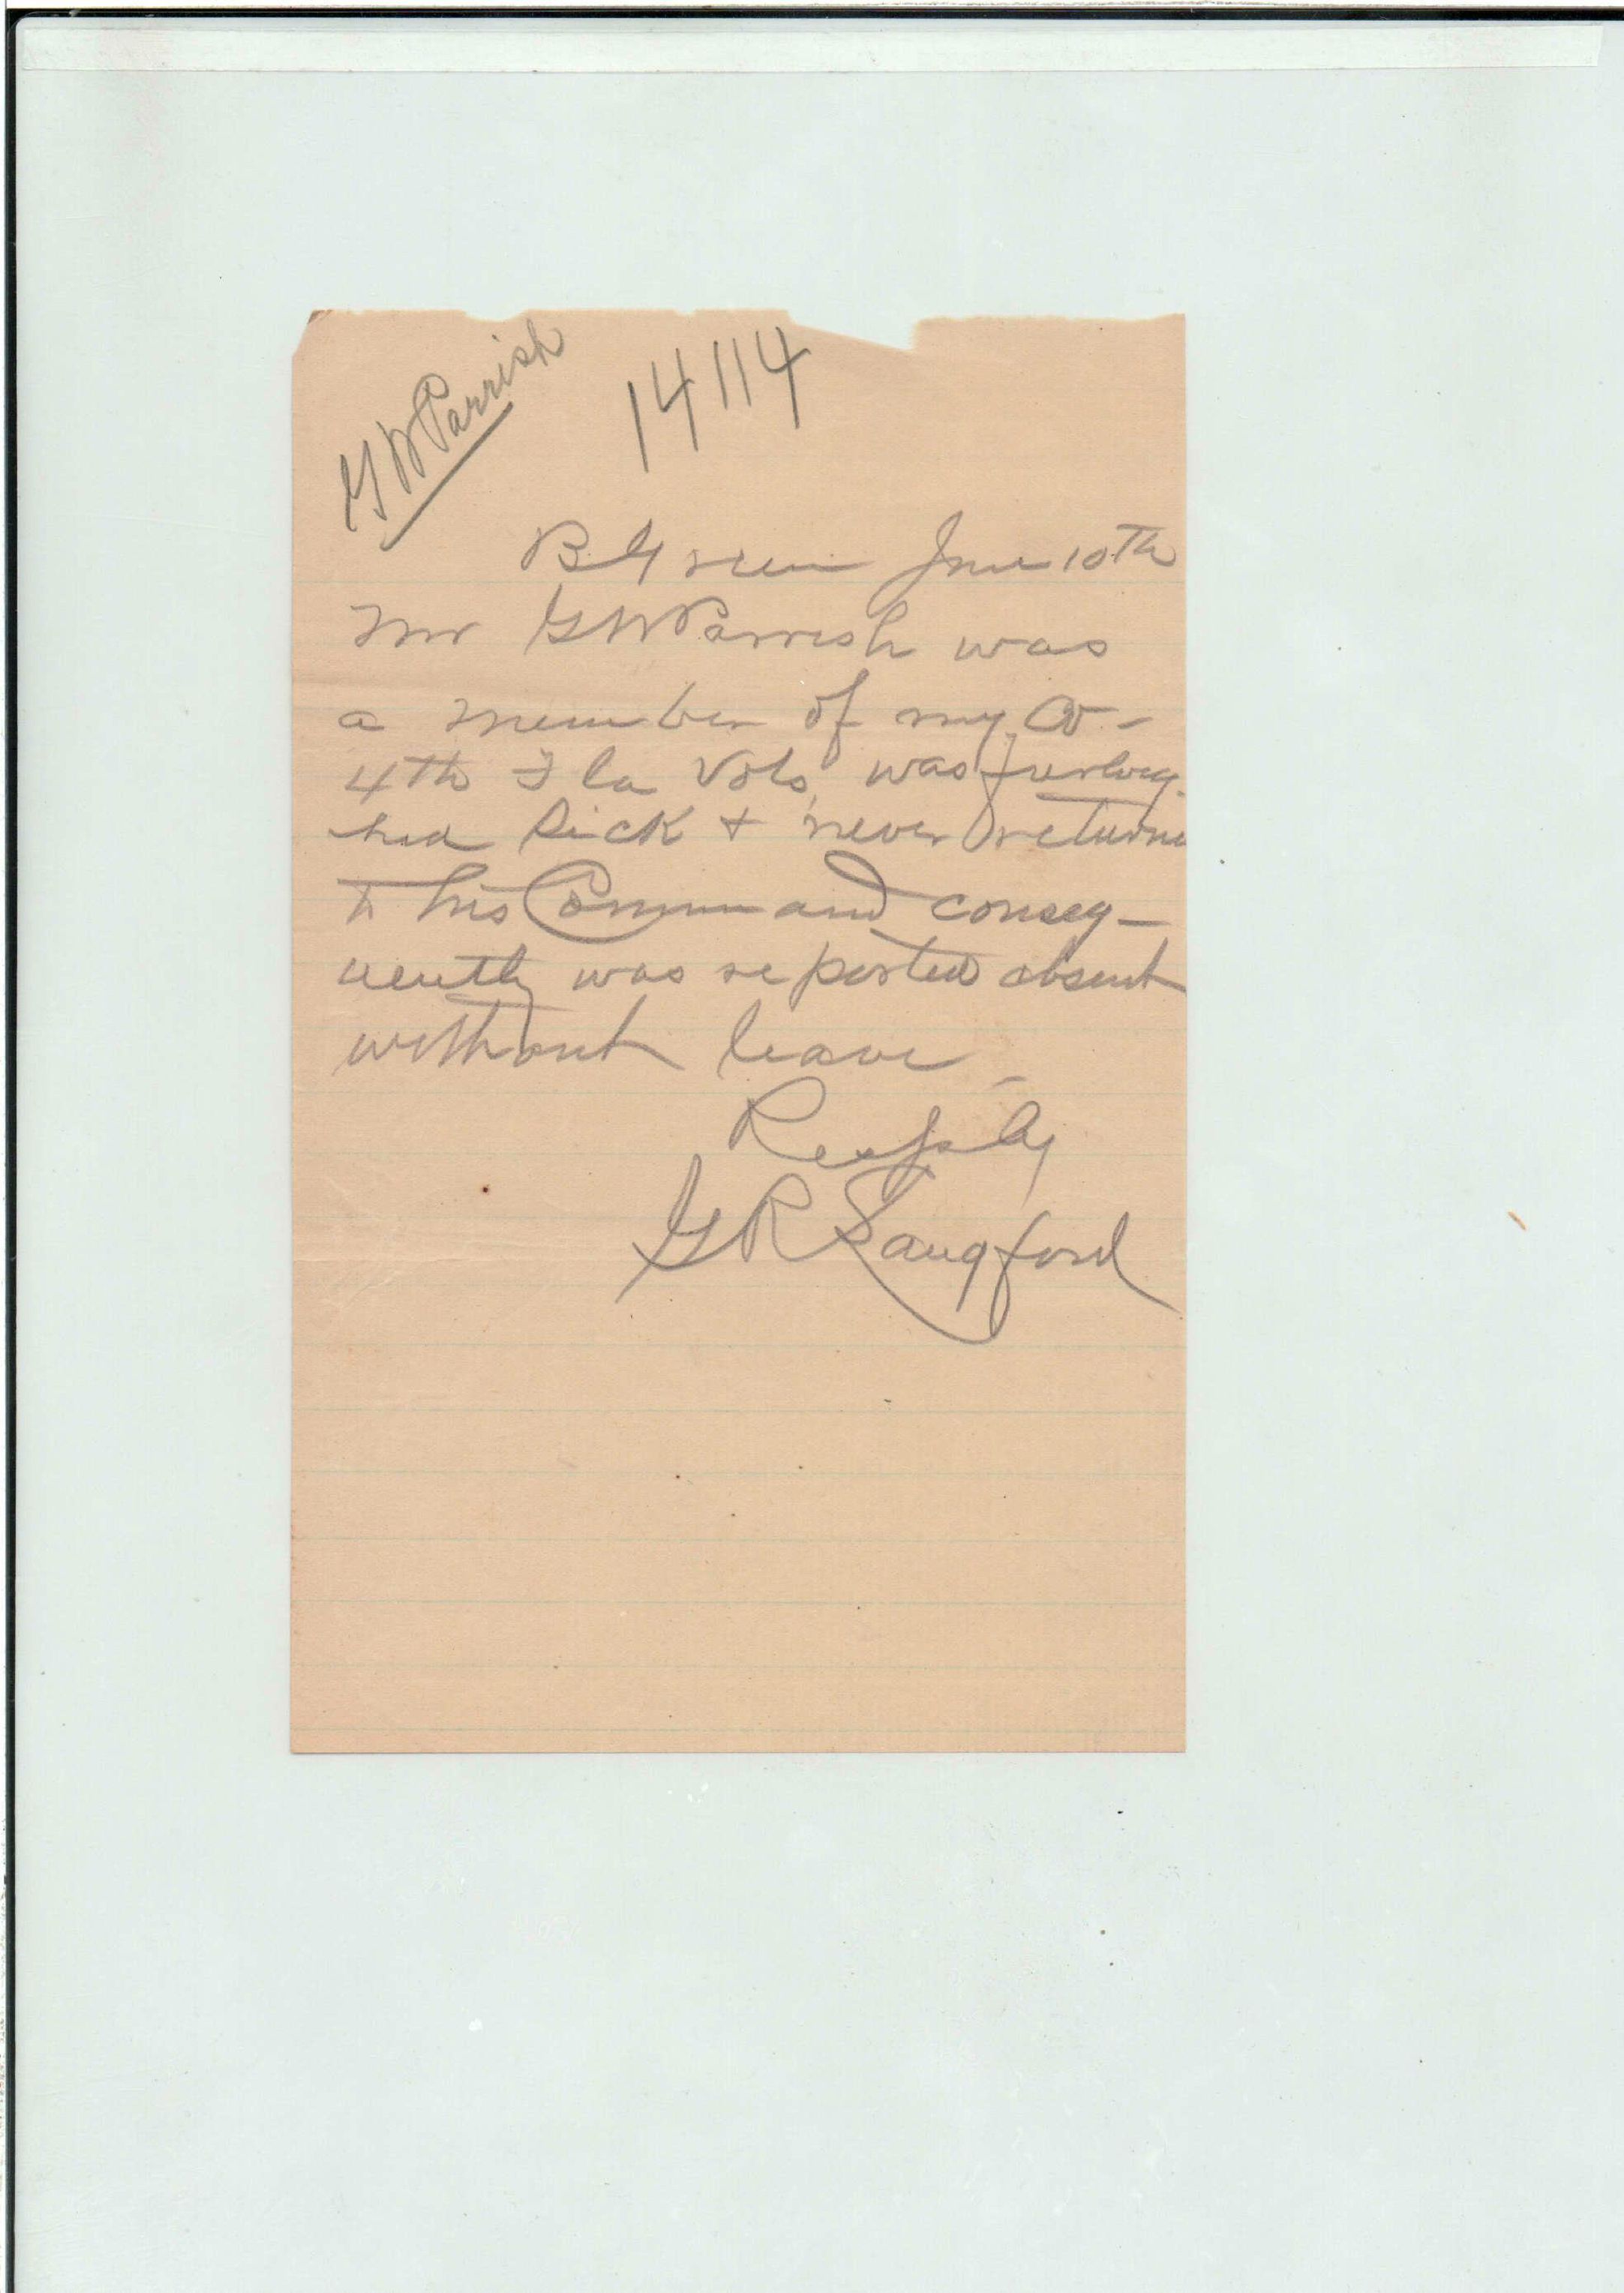 G W Parrish
14114
B. Green June 10th
Mr G W Parrish was
a member of my Co -
4th Fla Vols, was furloug-
hed Sick & never returne
to his Command conseq-
uently was reported absent
without leave -
Resply
G R Langford